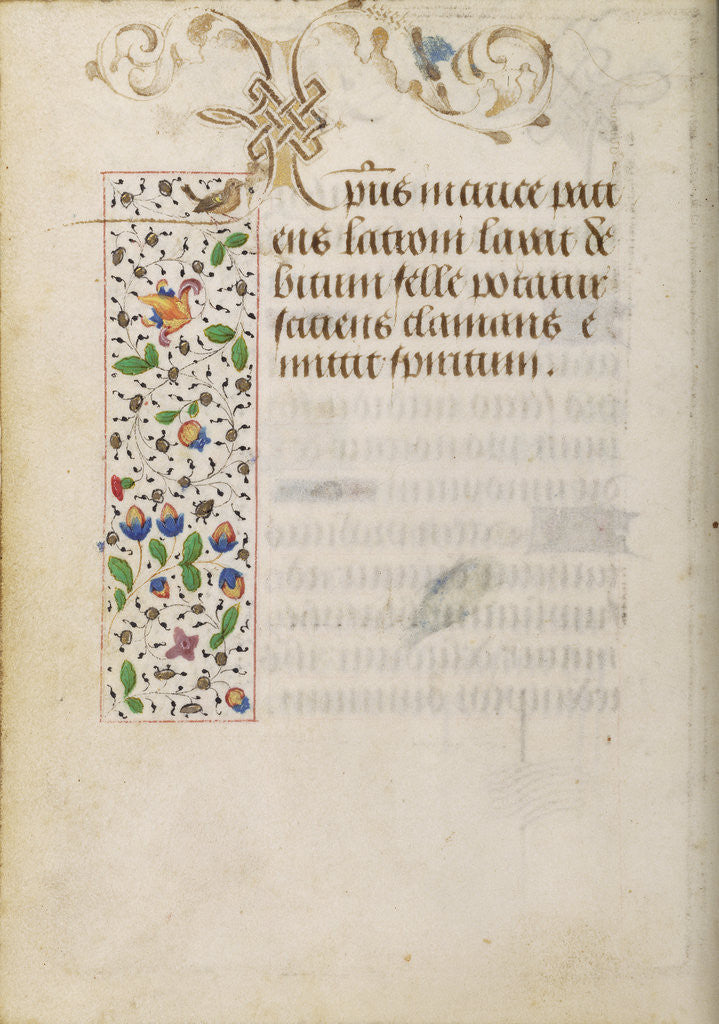 Xp̄us in cruce pati
ens latroni laxat de
bitum felle potatur
sitiens clamans e
mittit spiritum.